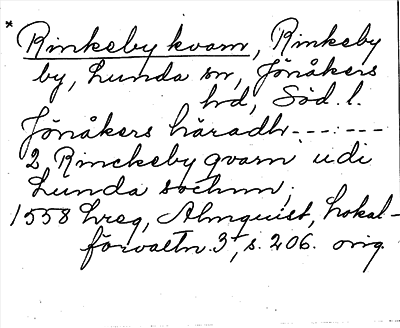 * Rinkeby kvarn, Rinkeby
by, Lunda sn, Jönåkers
hrd, Söd. l.
Jönåkers häradh - - - : - - -
2 Rinckeby qvarn udi
Lunda sochnn;
1558 hreg, Almquist, Lokal-
förvaltn. 3, s. 206. orig.